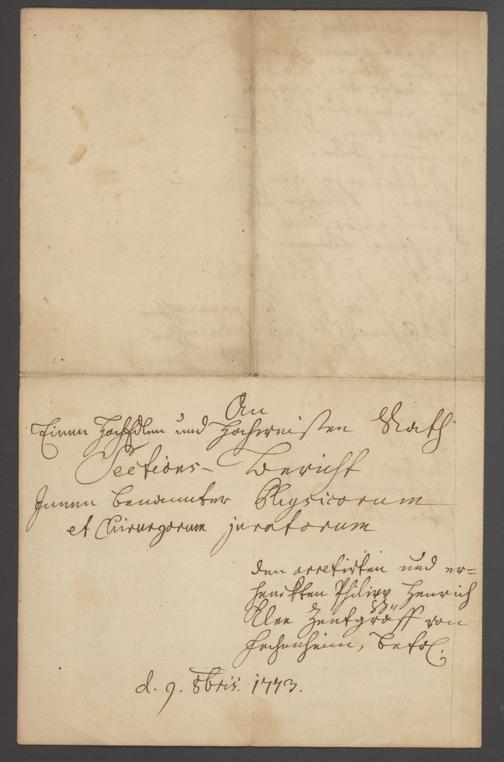 An
Einen HochEdlen und Hochweisen Rath
Sections- Bericht
Innen benannter Physicorum
et Chirurgorum juratorum
den arretirten und er=
henckten Philipp Henrich
Zentgräff von
Fechenheim, betr.
d. 9. 8bris. 1773.